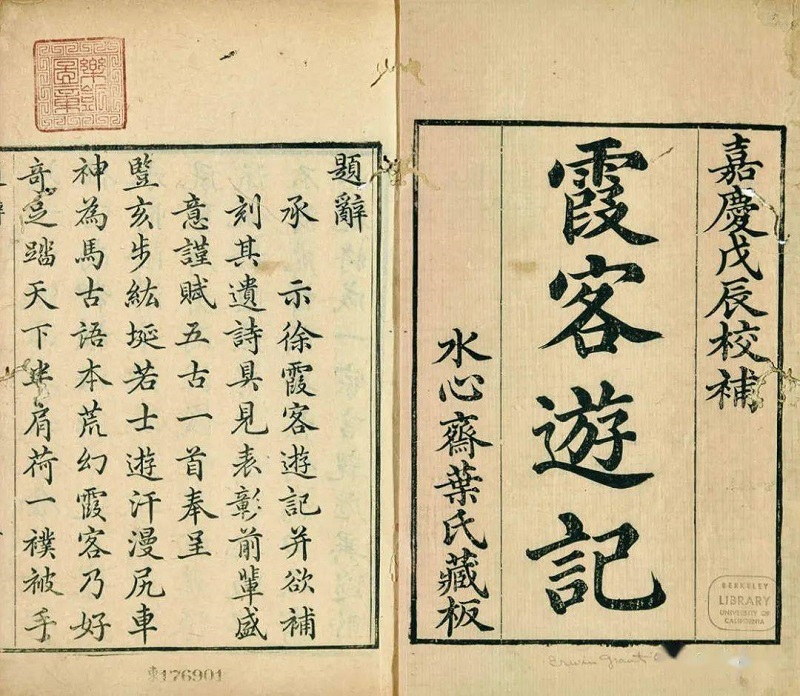 嘉慶戊辰校補
霞客遊記
水心齋葉氏藏板
BERKELEY
LIBRARY
UNIVERSITY OF
CALIFORNIA
題辭
承　示徐霞客遊記并欲補
刻其遺詩具見表彰前輩盛
意謹賦五古一首奉呈
豎亥步紘埏若士遊汗漫尻車
神為馬古語本荒幻霞客乃好
奇足踏天下半肩荷一襆被手
東176901
Erwin Grant